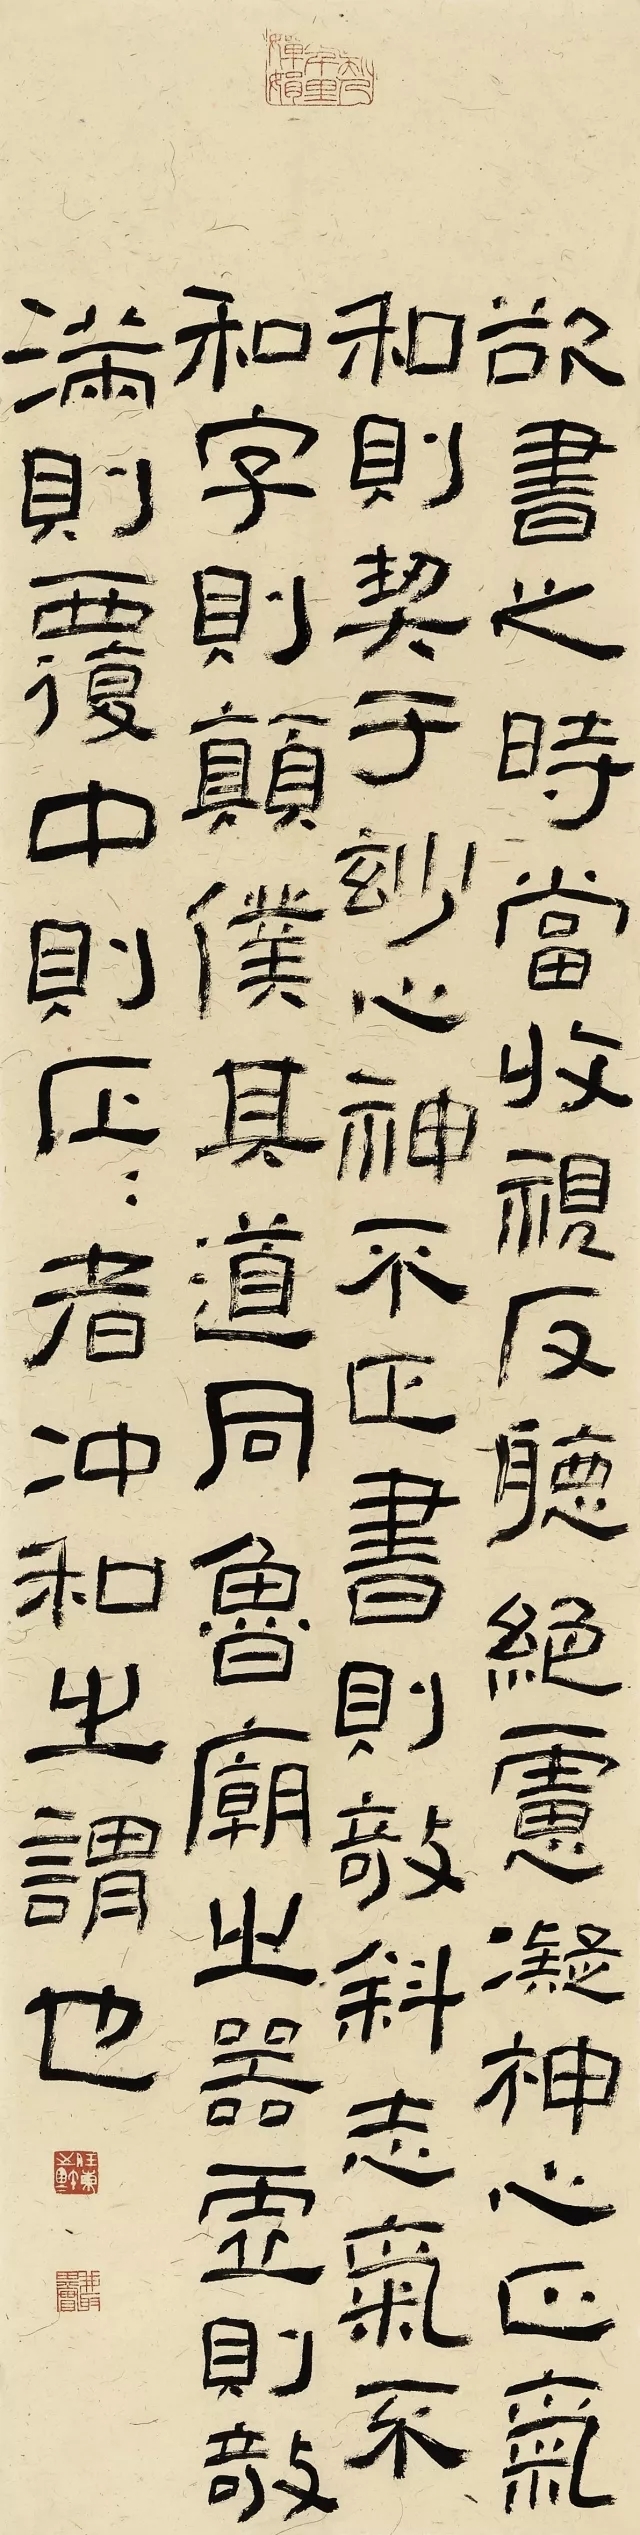 欲書之時當收視反聽絕慮凝神心正氣
和則契于玅心神不正書則敧斜志氣不
和字則顛僕其道同魯廟之器虛則敧
滿則覆中則正〻者冲和之謂也